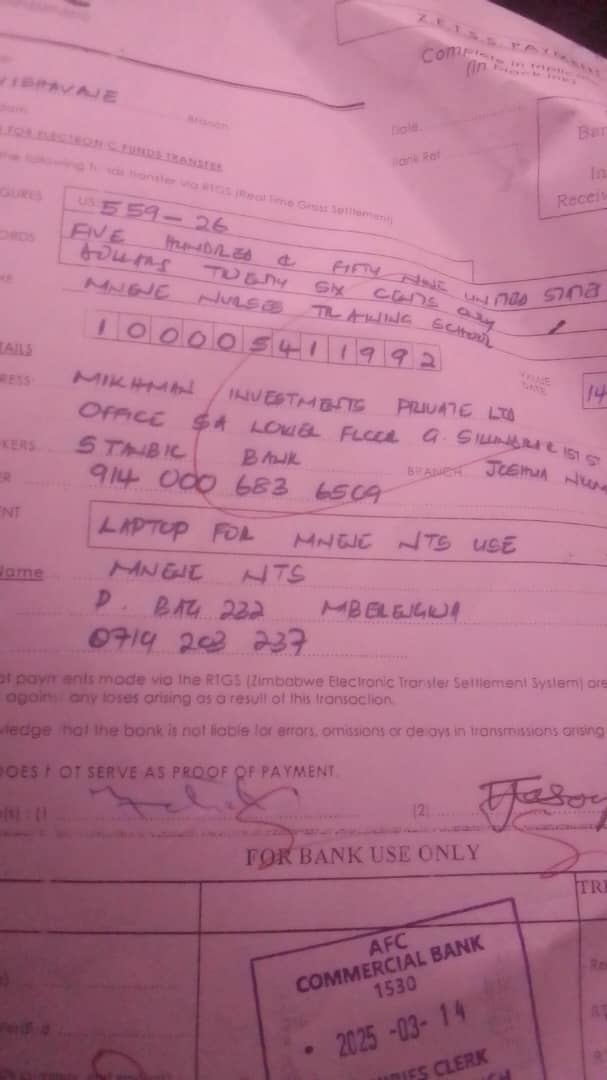 Z.E.T.S.S. PAYMENT
Complete in
(in black ink)
Branch
Date
Bank Ref
FOR ELECTRONIC FUNDS TRANSFER
following funds transfer via RTGS (Real Time Gross Settlement)
Receiv
US: 559-26
FIVE HUNDRED & FIFTY NINE UNITED STATES
DOLLARS TWENTY SIX CENTS ONLY
MNENE NURSES TRAINING SCHOOL
100005411992
VALUE DATE 14
MIKHMAN INVESTMENTS PRIVATE LTD
OFFICE 5A LOWER FLOOR
STANBIC BANK BRANCH JOSHUA
914 000 683 6509
LAPTOP FOR MNENE NTS USE
Name MNENE NTS
P. BAG 232 MBERENGWA
0714 203 237
payments made via the RTGS (Zimbabwe Electronic Transfer Settlement System) are
against any loses arising as a result of this transaction.
that the bank is not liable for errors, omissions or delays in transmissions arising
DOES NOT SERVE AS PROOF OF PAYMENT.
(2)
FOR BANK USE ONLY
AFC
COMMERCIAL BANK
1530
• 2025-03-14
CLERK